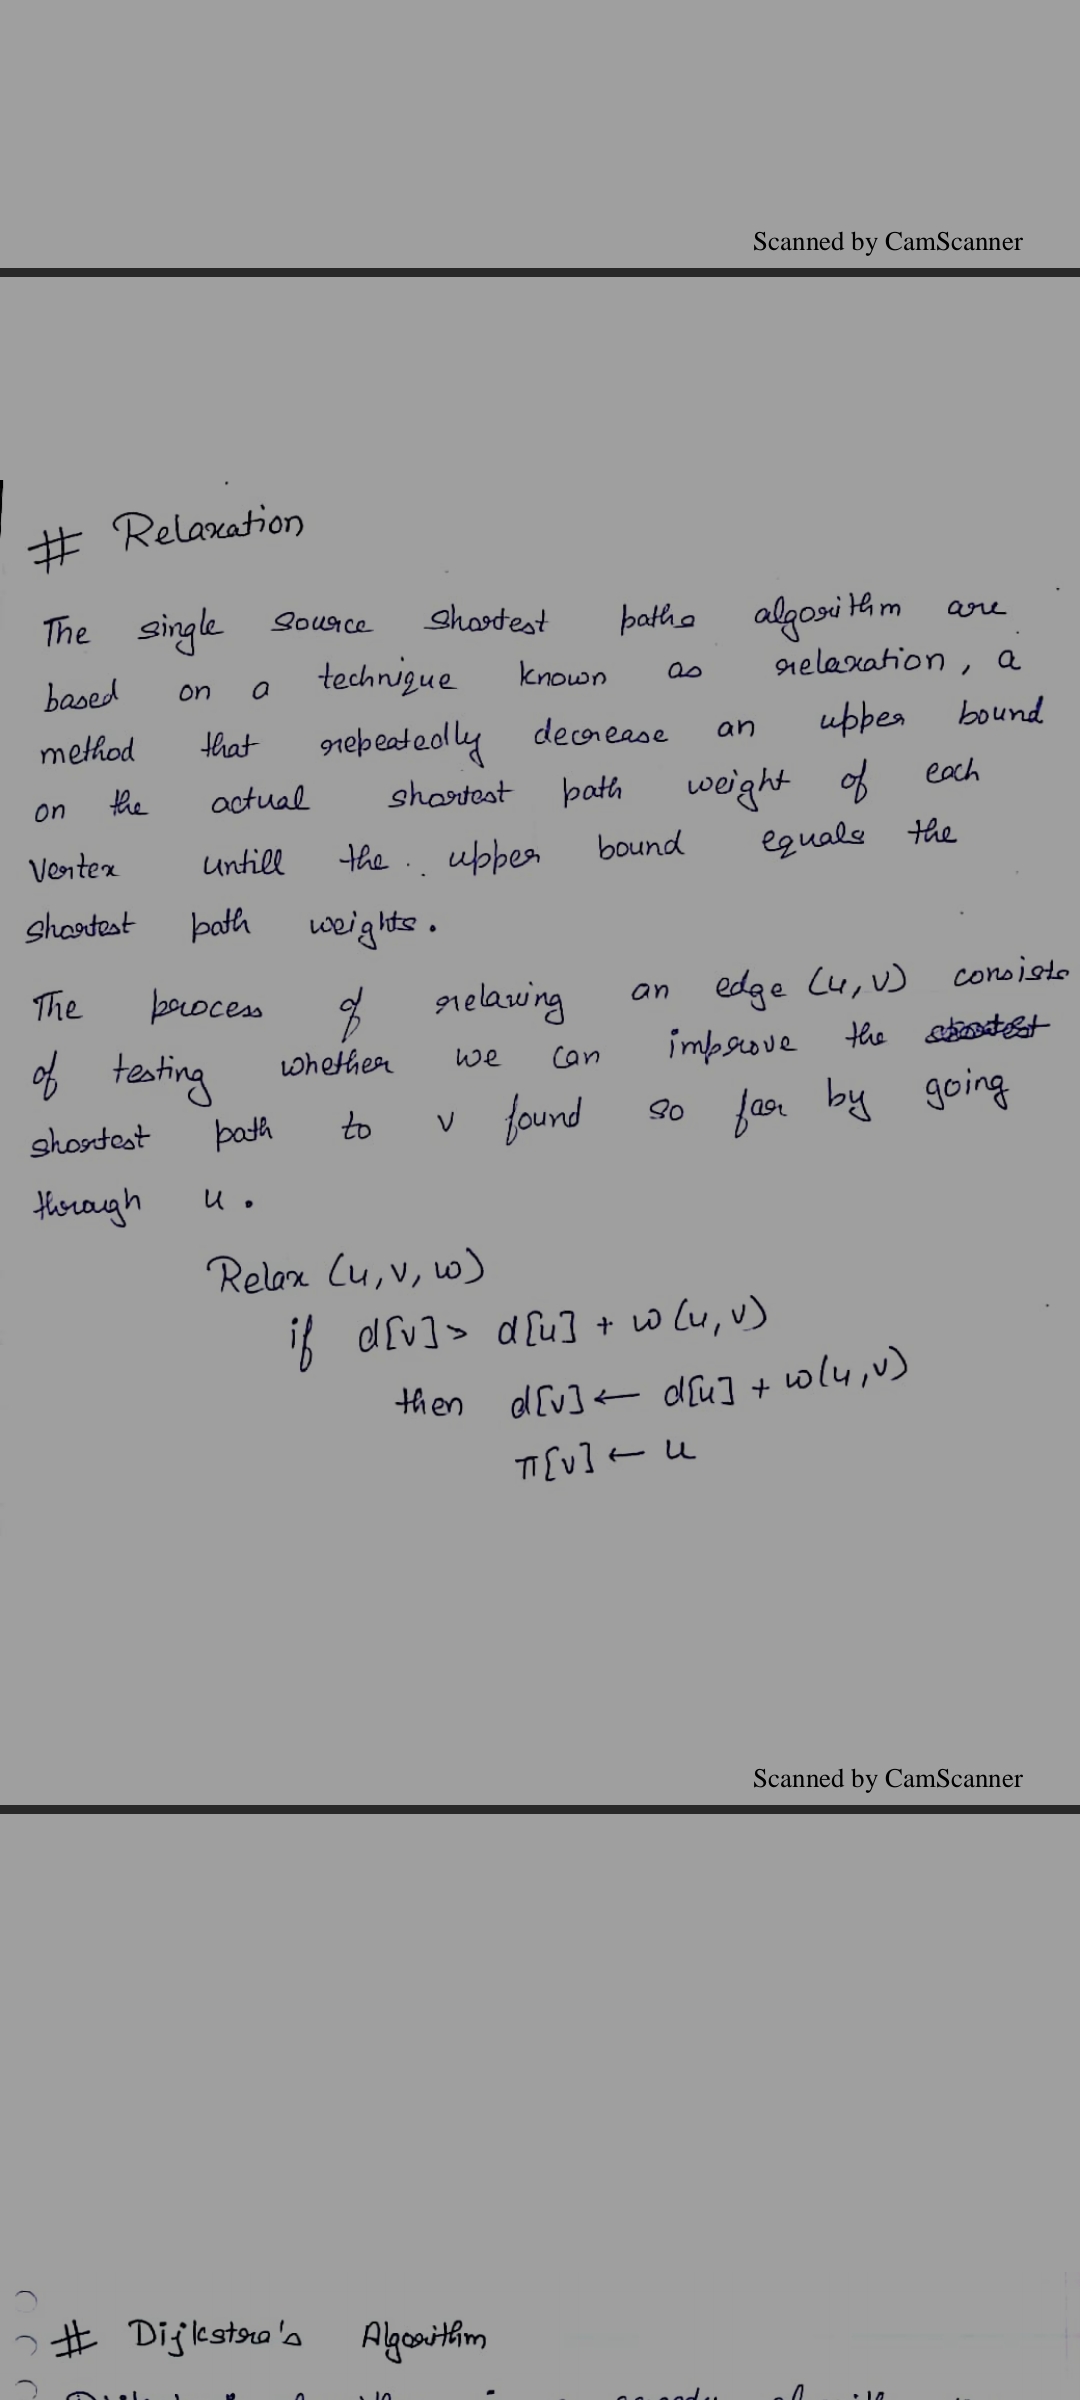 Scanned by CamScanner
# Relaxation
The single source shortest paths algorithm are
based on a technique known as relaxation, a
method that repeatedly decrease an upper bound
on the actual shortest path weight of each
Vertex untill the upper bound equals the
shortest path weights.
The process of relaxing an edge (u,v) consists
of testing whether we can improve the shortest
shortest path to v found so far by going
through u.
Relax (u, v, w)
if d[v] > d[u] + w(u, v)
then d[v] ← d[u] + w(u, v)
π[v] ← u
Scanned by CamScanner
# Dijkstra's Algorithm